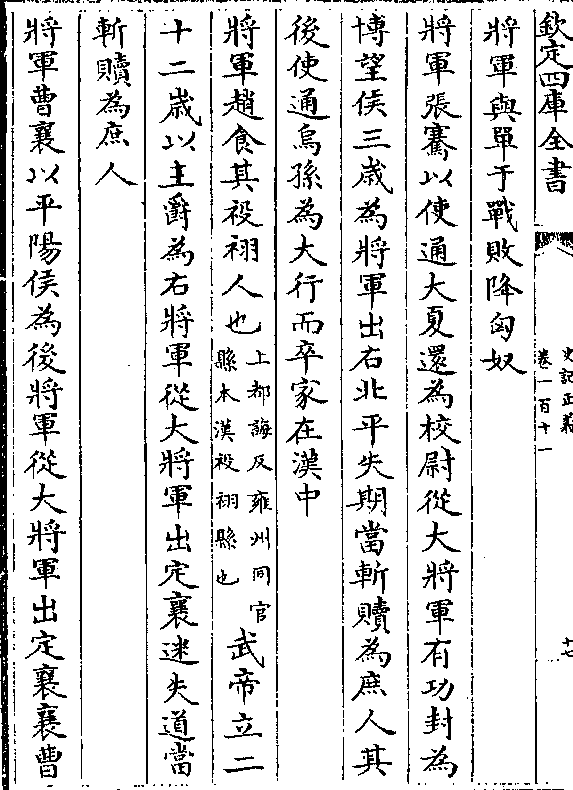 欽定四庫全書
史記正義
卷一百十一
十七
將軍與單于戰敗降匈奴
將軍張騫以使通大夏還為校尉從大將軍有功封為
博望侯三歲為將軍出右北平失期當斬贖為庶人其
後使通烏孫為大行而卒家在漢中
將軍趙食其祋祤人也上都誨反雍州同官縣本漢祋祤縣也武帝立二
十二歲以主爵為右將軍從大將軍出定襄迷失道當
斬贖為庶人
將軍曹襄以平陽侯為後將軍從大將軍出定襄襄曹